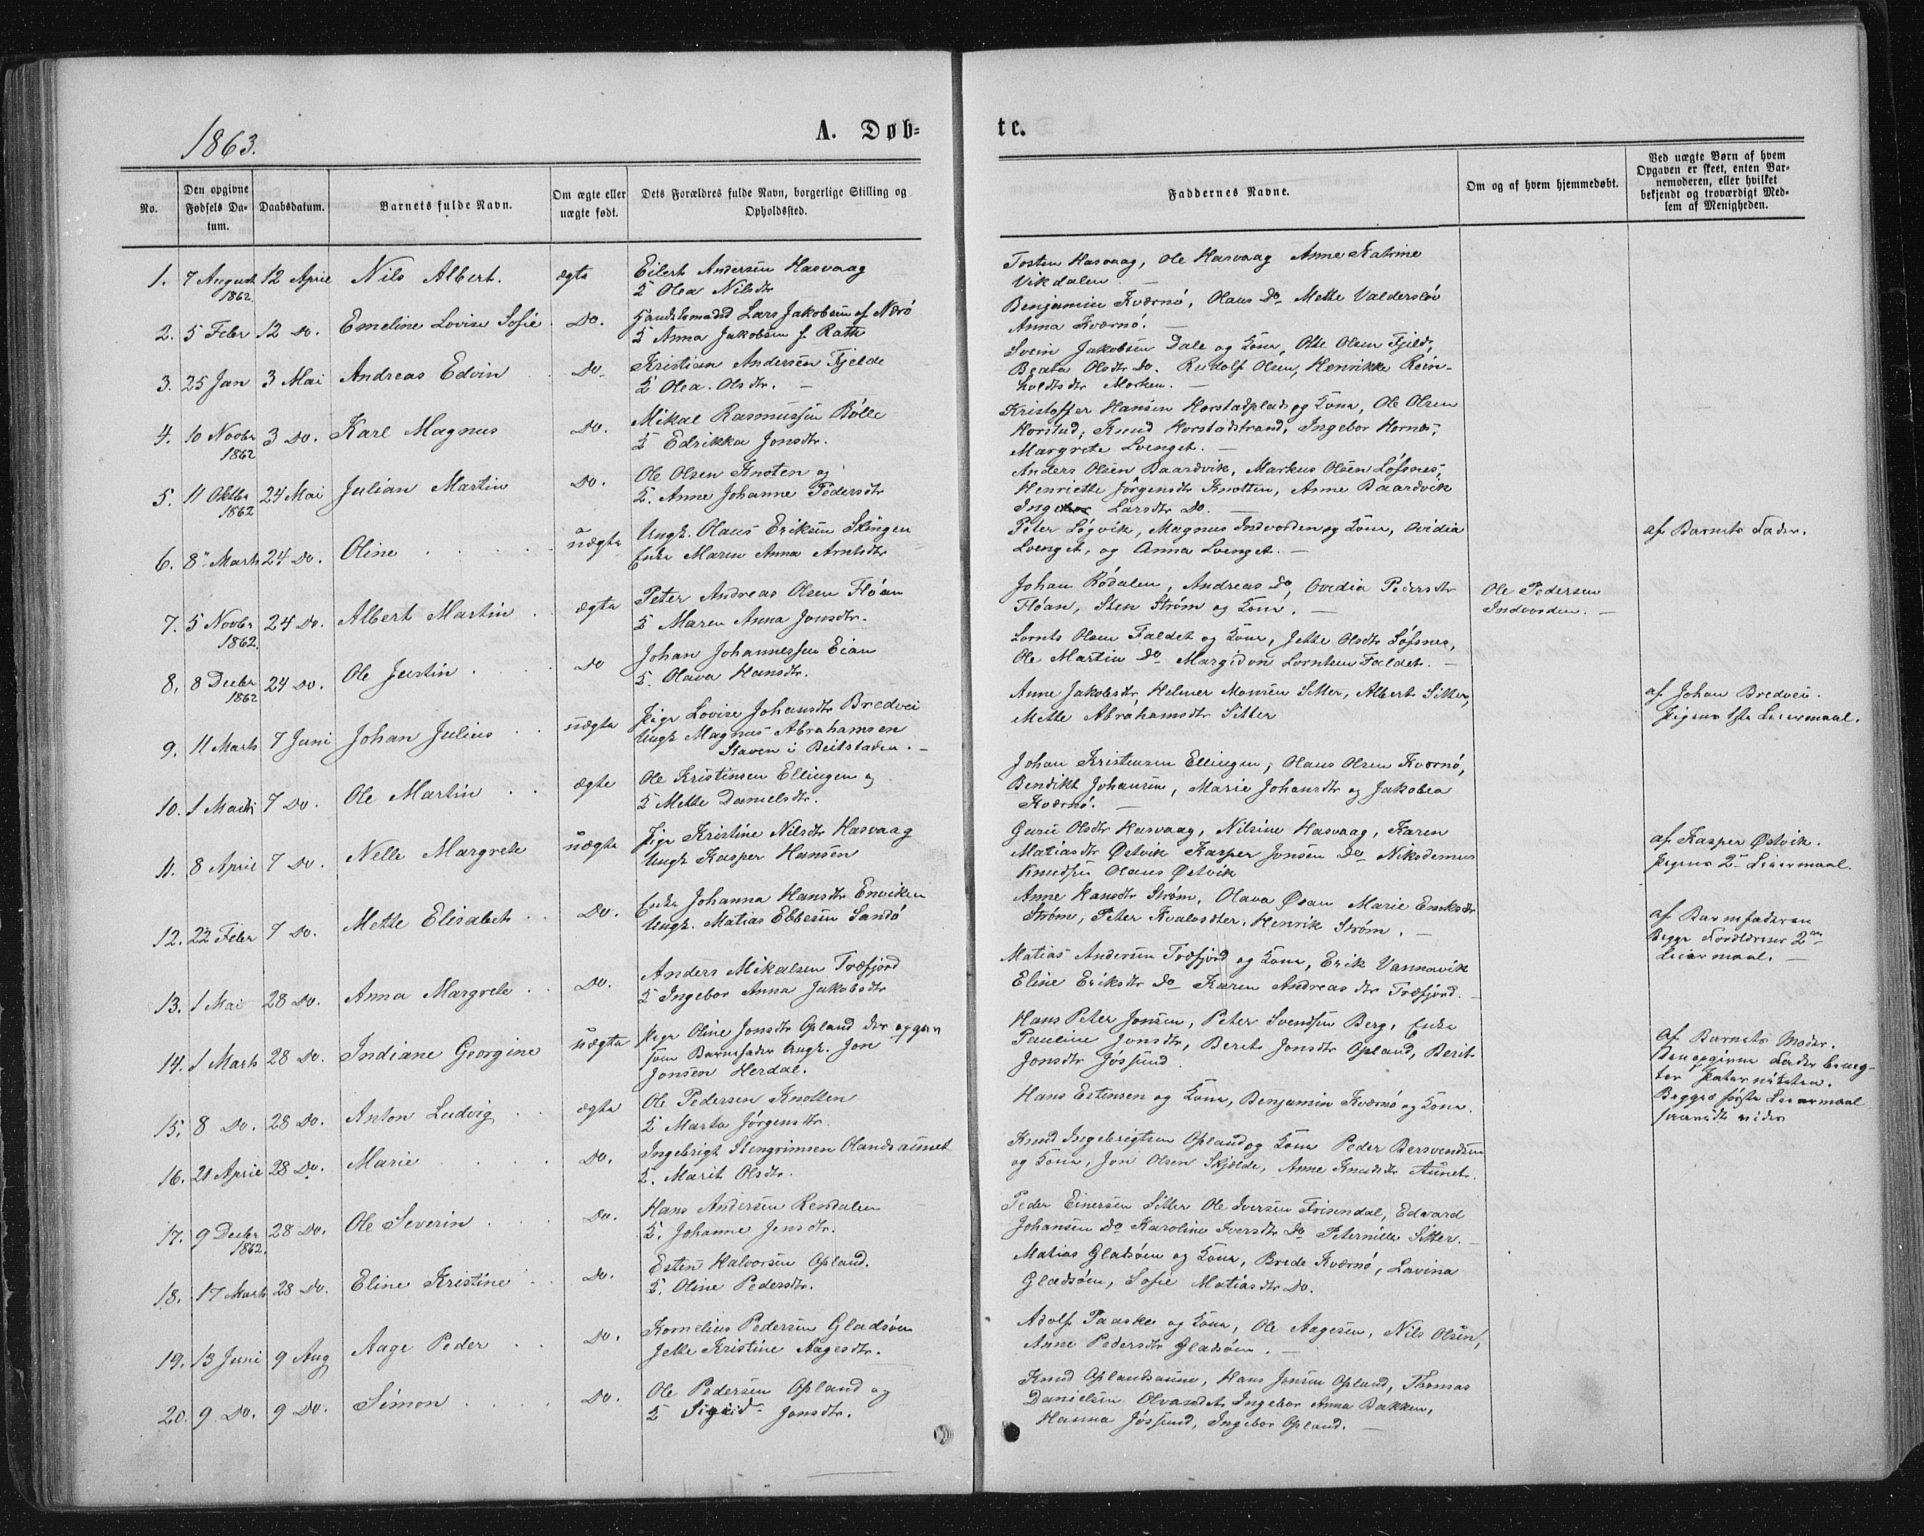 1863.
A. Døb-
te.
No.
Den opgivne Fødsels Da-tum.
Daabsdatum.
Barnets fulde Navn.
Om ægte eller uægte født.
Dets Forældres fulde Navn, borgerlige Stilling og Opholdssted.
Faddernes Navne.
Om og af hvem hjemmedøbt.
Ved uægte Børn af hvem Opgaven er skeet, enten Bar-nemoderen, eller hvilket bekjendt og troværdigt Med-lem af Menigheden.
1. 7 August 1862 12 April Nils Albert. ægte
Eilert Andersen Hasvaag
Olea Nilsdtr
Tosten Hasvaag, Ole Hasvaag Anne Katrine
Vikdalen. —
2. 5 Feber 12 Do. Emeline Lovise Sofie. Do.
Handelsmand Lars Jakobsen af Nærø
Anna Jakobsen f. Rath
Benjamin Kværnø, Olaus Do Mette
Anna Kværnø. —
3. 25 Jan 3 Mai Andreas Edvin Do.
Kristian Andersen Fjelde
Olea Olsdtr. —
Svein Jakobsen Dale og Kone, Otte Olsen Fjeld,
Beata Olsdtr Do. Rudolf Olsen, Henrikke Rein-
holdtsdtr Morken. —
4. 10 Novbr 1862 3 Do. Karl Magnus Do.
Mikal Rasmussen Rølle
Edrikka Jonsdtr.
Kristoffer Hansen Horstadplads og Kone, Ole Olsen
Horstad, Knud Horstadstrand, Ingebor Hornes,
Margrete Lvenget. —
5. 11 Oktbr 1862 24 Mai Julian Martin Do.
Ole Olsen Knoten og
Anne Johanne Pedersdtr
Anders Olsen Baardvik, Markus Olsen Løfsnes,
Henriette Jørgensdtr Knotten, Anne Baardvik
Larsdtr Do. —
6. 8 Marts 24 Do. Oline uægte
Ungk. Olaus Eriksen Skingen
Enke Maren Anna Arntsdtr
Peter Løgvik, Magnus Indvorden og Kone, Ovidia
Lvenget, og Anna Lvenget. —
af Barnets Fader.
7. 5 Novbr 1862. 24 Do. Albert Martin ægte
Peter Andreas Olsen Fløan
Maren Anna Jonsdtr.
Johan Rødalen, Andreas Do, Ovidia Pedersdtr
Fløan, Sten Strøm og Kone. —
Ole Pedersen
Indvorden. —
8. 8 Decbr 1862 24 Do. Ole Justin Do
Johan Johannessen Eian
Olava Hansdtr.
Lornts Olsen Faldet og Kone, Jette Olsdtr Løfsnes,
Ole Martin Do Lorntsen Faldet. —
9. 11 Marts 7 Juni Johan Julius uægte
Pige Lovise Johansdtr Bredvei
Ungk. Magnus Abrahamsen
Staven i Beitstaden. —
Anne Jakobsdtr Helmer Monsen Sitter, Albert Sitter,
Mette Abrahamsdtr Sitter
af Johan Bredvei.
Pigens 1ste Leiermaal.
10. 1 Marts 7 Do. Ole Martin ægte
Ole Kristensen Ellingen og
Mette Danielsdtr.
Johan Kristensen Ellingen, Olaus Olsen Kværnø,
Bendikt Johansen, Marie Johansdtr og Jakobea
Kværnø. —
11. 8 April 7 Do. Nelle Margrete uægte
Pige Kristine Nilsdtr Hasvaag
Ungk. Kasper Hansen
Guru Olsdtr Hasvaag, Nilsine Hasvaag, Karen
Matiasdtr Østvik Kasper Jonsen Do Nikodemus
Knudsen Olaus Østvik
af Kasper Østvik.
Pigens 2 Leiermaal.
12. 22 Feber 7 Do. Mette Elisabet Do.
Enke Johanna Hansdtr Enviken
Ungk. Matias Ebbesen Sandø
Anne Hansdtr Strøm, Olava Marie
Strøm, Peter Henrik Strøm. —
af Barnefaderen
Begge Forældrenes 2det
Leiermaal. —
13. 1 Mai 28 Do. Anna Margrete Do.
Anders Mikalsen Træfjord
Ingebor Anna Jakobsdtr
Matias Andersen Træfjord og Kone, Erik Vannavik
Eline Eriksdtr Do Karen Andreasdtr Træfjord. —
14. 1 Marts 28 Do. Indiane Georgine uægte
Pige Oline Jonsdtr Opland der opgav
som Barnefader Ungk. Jon
Jonsen Herdal.
Hans Peter Jonsen, Peter Svendsen Berg, Enke
Pauline Jonsdtr, Berit Jonsdtr Opland, Berit
Jonsdtr Jøssund. —
af Barnets Moder.
Den opgivne Fader benæg-
ter Paterniteten.
Begges første Leiermaal
15. 8 Do. 28 Do. Anton Ludvig ægte
Ole Pedersen Knotten
Marta Jørgensdtr.
Hans Estensen og Kone, Benjamin Kværnø og Kone.
16. 21 April 28 Do. Marie Do.
Ingebrigt Stengrimsen Olandsaunet
Marit Olsdtr.
Knud Ingebrigtsen Opland og Kone Peder Bersvendsen
og Kone, Jon Olsen Skjelde, Anne Knudsdtr Aunet.
17. 9 Decbr 1862. 28 Do. Ole Severin Do.
Hans Andersen Rendalen
Johanne Jensdtr.
Peder Einersen Sitter Ole Iversen Frisendal, Edvard
Johansen Do Karoline Iversdtr Do Peternille Sitter. —
18. 17 Marts 28 Do. Eline Kristine Do.
Esten Halvorsen Opland.
Oline Pedersdtr.
Matias Gladsøen og Kone, Brede Kværnø, Lavina
Gladsøen, Sofie Matiasdtr Do.
19. 13 Juni 9 Aug Aage Peder Do.
Kornelius Pedersen Gladsøen
Jette Kristine Aagesdtr.
Adolf Paaske og Kone, Ole Aagesen, Nils Olsen,
Anne Pedersdtr Gladsøen. —
20. 9 Do. 9 Do. Simon Do.
Ole Pedersen Opland og
Sigrid Jonsdtr.
Knud Oplandsaune, Hans Jonsen Opland, Thomas
Danielsen Ingebor Anna Bakken,
Hanna Jøssund, Ingebor Opland. —